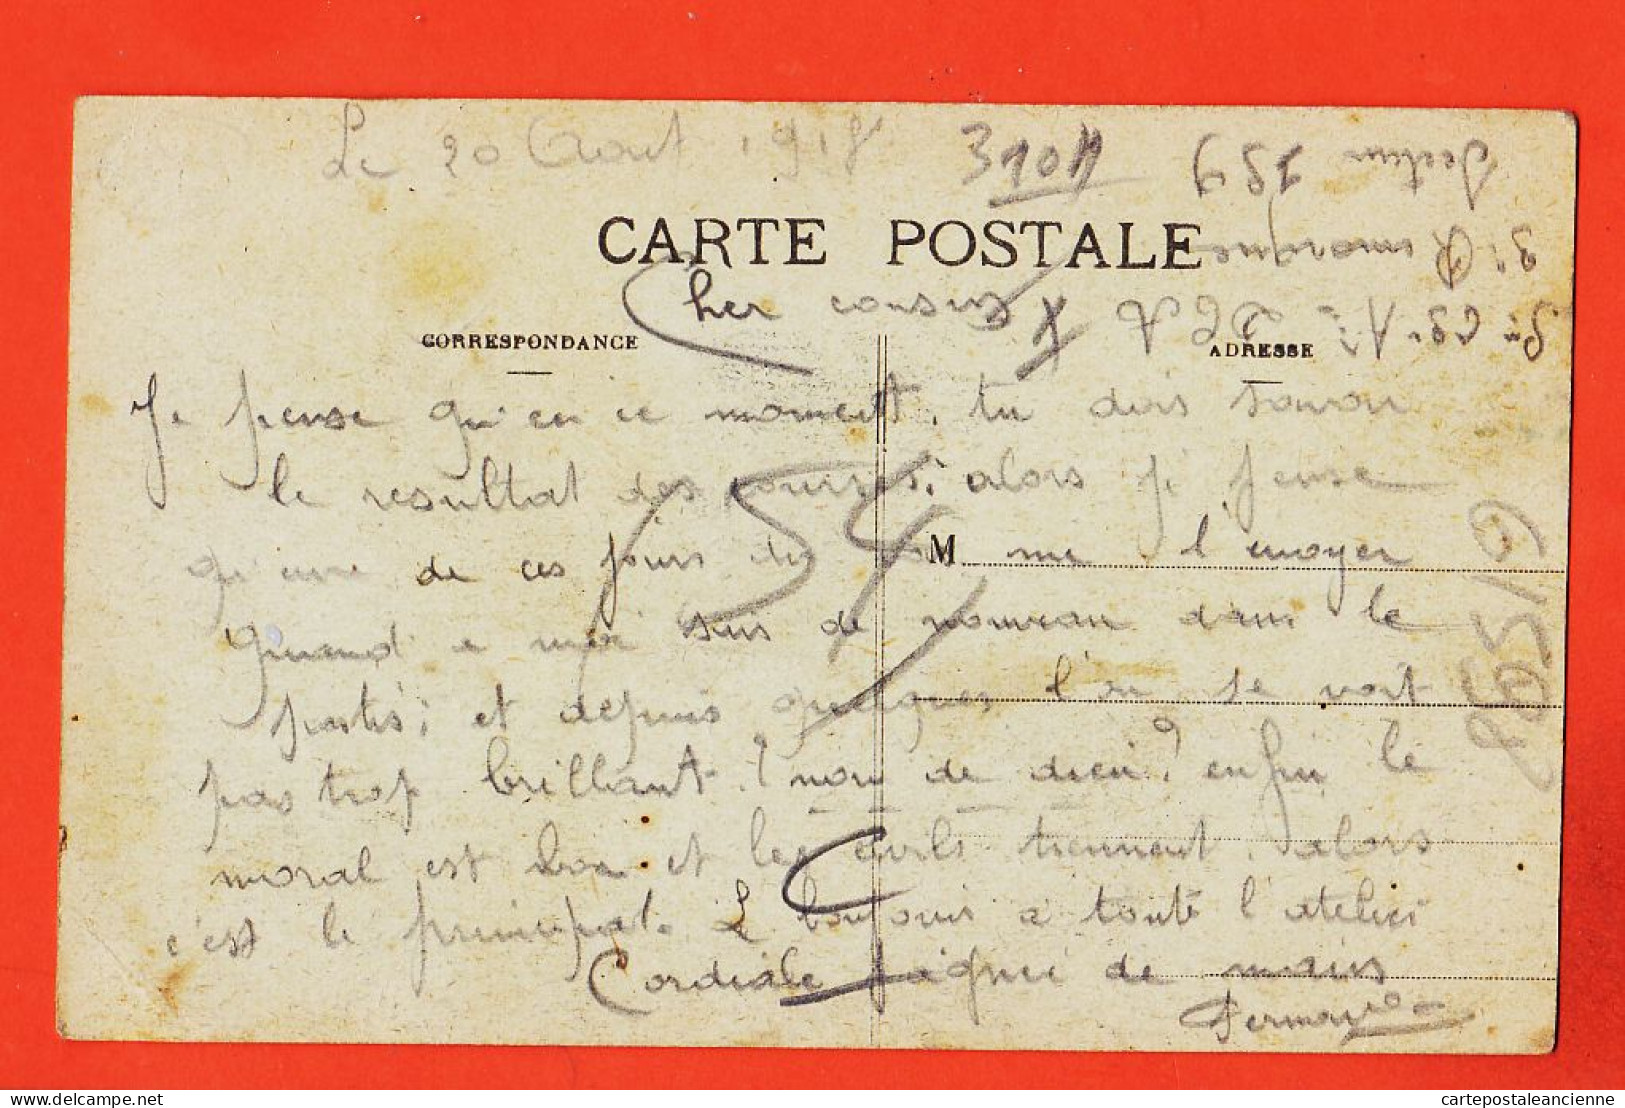 Le 20 Aout 1918
310H
Section 259
3e Remorque
CARTE POSTALE
DCA
Cher cousin
CORRESPONDANCE
ADRESSE
Je pense qu'en ce moment, tu dois savoir
le resultat des courses; alors je pense
qu'une de ces jours tu M me l'envoyer
quand a moi suis de nouveau dans le
pastis; et depuis quelques l'on se voit
pas trop brillant. ! nom de dieu! enfin le
moral est bon et les civils tiennent. alors
c'est le principal. Le bonjour a toute l'atelier
Cordiale poignée de mains
Fernand
delcampe.net
cartepostaleancienne